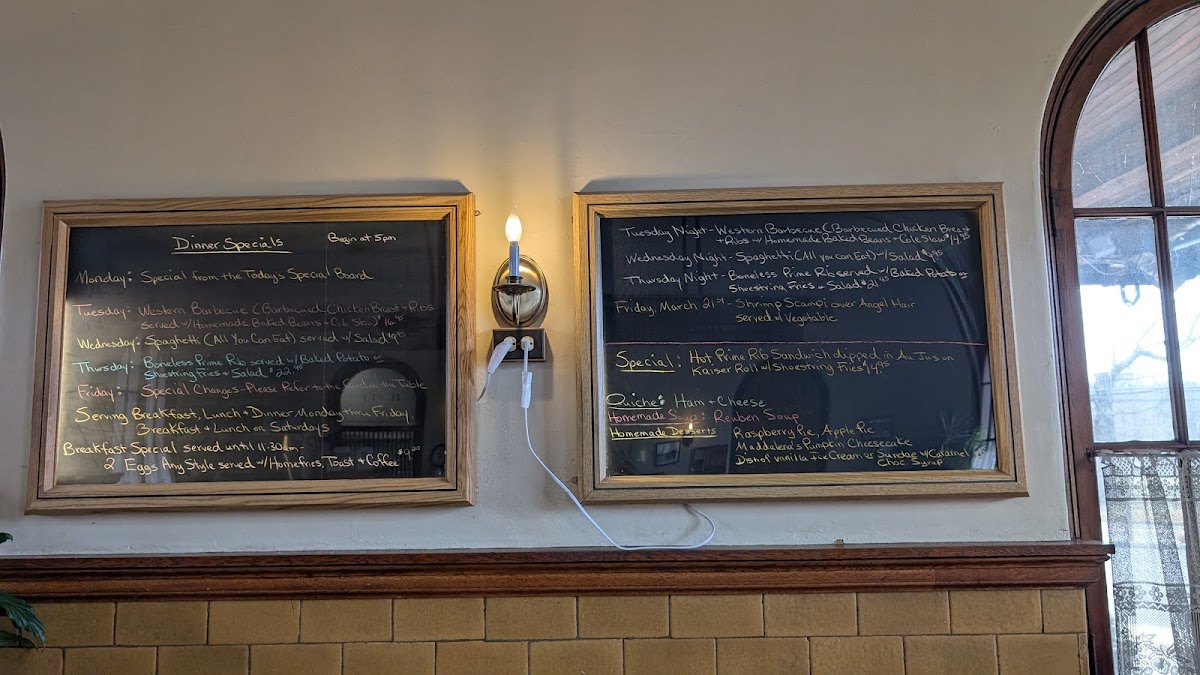 Dinner Specials
Begin at 5pm
Monday: Special from the Today's Special Board
Tuesday: Western Barbecue (Barbecued Chicken Breast + Ribs
served w/Homemade Baked Beans + Cole Slaw)
Wednesday: Spaghetti (All You Can Eat) served w/Salad
Thursday: Boneless Prime Rib served w/Baked Potato or
Shoestring Fries + Salad
Friday: Special Changes - Please Refer to the Card on the Table
Serving Breakfast, Lunch + Dinner Monday thru Friday.
Breakfast + Lunch on Saturdays
Breakfast Special served until 11:30am -
2 Eggs Any Style served w/Homefries, Toast + Coffee
Tuesday Night - Western Barbecue (Barbecued Chicken Breast
+ Ribs w/Homemade Baked Beans + Cole Slaw
Wednesday Night - Spaghetti (All you can Eat) w/Salad
Thursday Night - Boneless Prime Rib served w/Baked Potato or
Shoestring Fries + Salad
Friday, March 21st - Shrimp Scampi over Angel Hair
served w/Vegetable
Special: Hot Prime Rib Sandwich dipped in Au Jus on
Kaiser Roll w/Shoestring Fries $14.95
Quiche: Ham + Cheese
Homemade Soup: Reuben Soup
Homemade Desserts Raspberry Pie, Apple Pie
Maddalena's Pumpkin Cheesecake
Dish of Vanilla Ice Cream or Sundae w/Caramel
Choc. Syrup